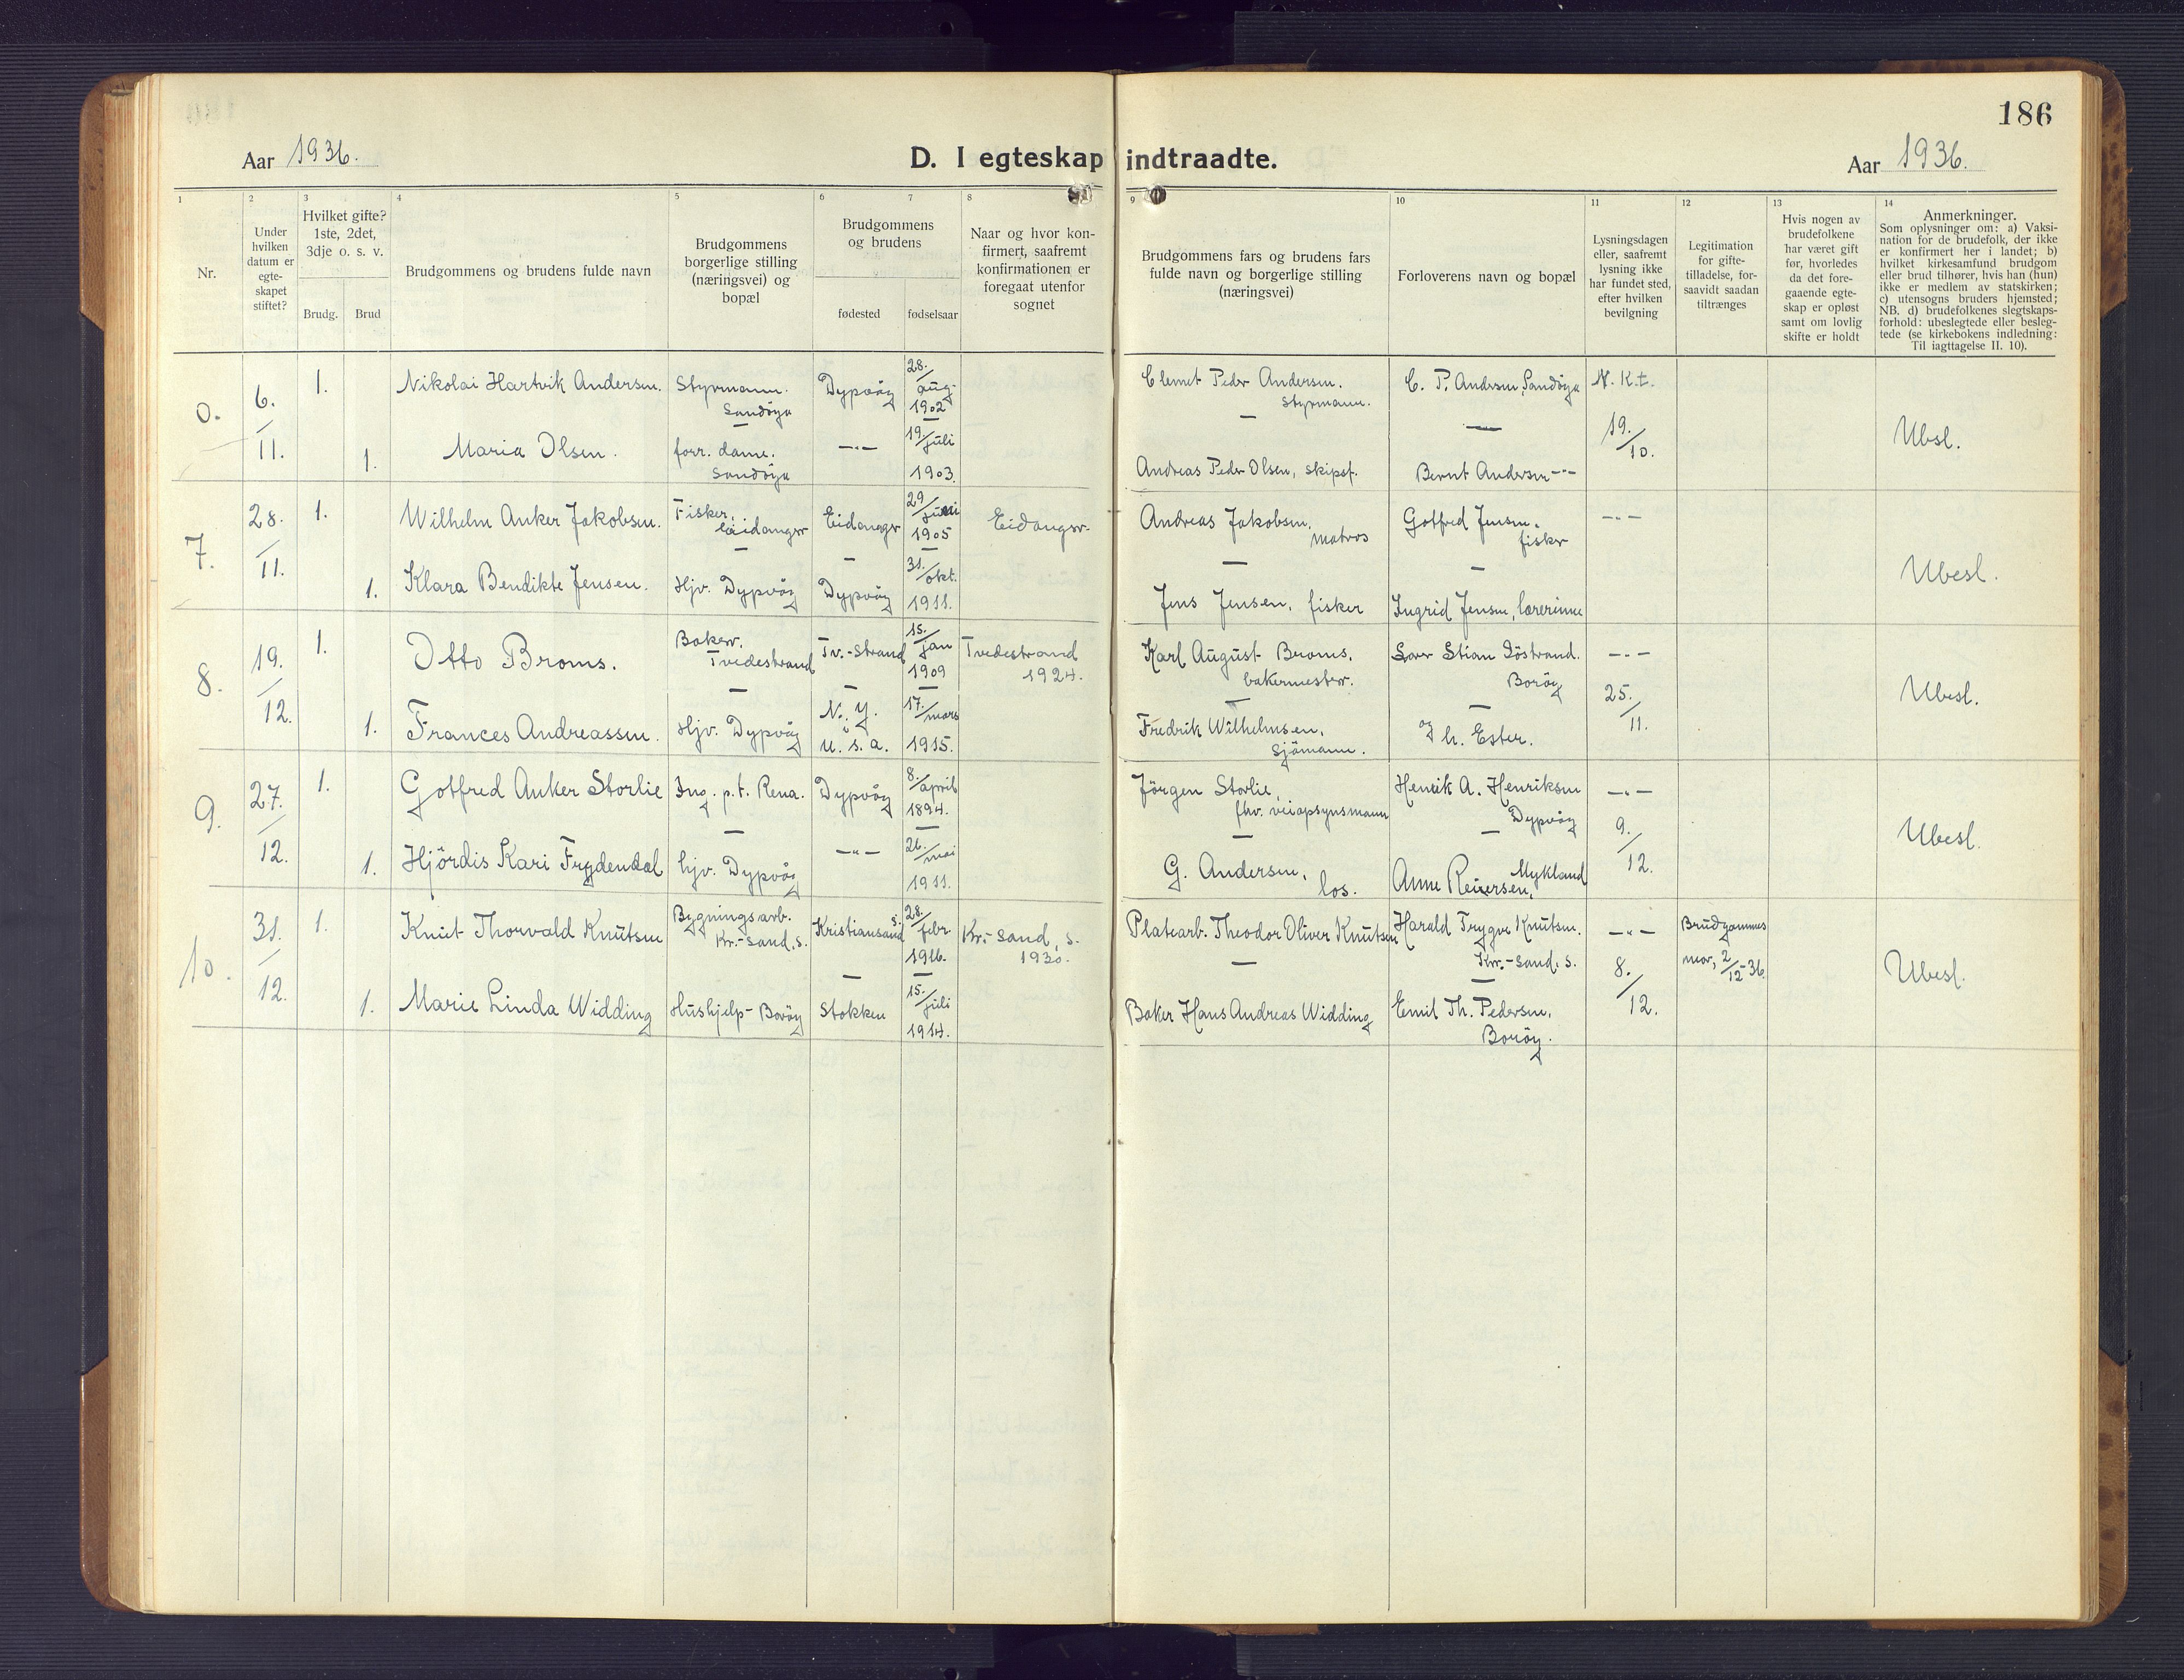 186
Aar 1936.
D. I egteskap indtraadte.
Aar 1936.
1
Nr.
2
Under
hvilken
datum er
egte-
skapet
stiftet?
3
Hvilket gifte?
1ste, 2det,
3dje o. s. v.
Brudg.
Brud
4
Brudgommens og brudens fulde navn
5
Brudgommens
borgerlige stilling
(næringsvei) og
bopæl
6
7
Brudgommens
og brudens
fødested
fødselsaar
8
Naar og hvor kon-
firmert, saafremt
konfirmationen er
foregaat utenfor
sognet
9
Brudgommens fars og brudens fars
fulde navn og borgerlige stilling
(næringsvei)
10
Forloverens navn og bopæl
11
Lysningsdagen
eller, saafremt
lysning ikke
har fundet sted,
efter hvilken
bevilgning
12
Legitimation
for gifte-
tilladelse, for-
saavidt saadan
tiltrænges
13
Hvis nogen av
brudefolkene
har været gift
før, hvorledes
da det fore-
gaaende egte-
skap er opløst
samt om lovlig
skifte er holdt
14
Anmerkninger.
Som oplysninger om: a) Vaksi-
nation for de brudefolk, der ikke
er konfirmert her i landet; b)
hvilket kirkesamfund brudgom
eller brud tilhører, hvis han (hun)
ikke er medlem av statskirken;
c) utensogns bruders hjemsted;
NB. d) brudefolkenes slegtskaps-
forhold: ubeslegtede eller besleg-
tede (se kirkebokens indledning:
Til iagttagelse II. 10).
6.
/
11.
1.
Nikolai Hartvik Andersen.
Styrmann.
Sandöya
Dypvåg
28./
aug.
1902
Clemet Peder Andersen.
Styrmann.
C. P. Andersen, Sandöya
N. K. t.
19./
10.
Ubsl.
1.
Maria Olsen.
forr. dame.
Sandöya
—"—
19./
juli
1903.
Andreas Peder Olsen, skipsf.
Bernt Andersen —"—
7.
28.
/
11.
1.
Wilhelm Anker Jakobsen.
Fisker.
Eidanger
Eidanger
29/
juni
1905
Eidanger
Andreas Jakobsen,
matros
Gotfred Jensen.
fisker
—"—
Ubesl.
1.
Klara Bendikte Jensen.
Hjv. Dypvåg
Dypvåg
31./
okt.
1911.
Jens Jensen, fisker
Ingrid Jensen, lærerinne
8.
19.
/
12.
1.
Otto Broms.
Baker.
Tvedestrand
Tv.-strand
15./
jan
1909
Tvedestrand
1924.
Karl August Broms.
bakermester.
Stian
Boröy
—"—
25./
11.
Ubesl.
1.
Frances Andreassen.
Hjv. Dypvåg
N. Y.
i
U. S. A.
17./
mars
1915.
Fredrik Wilhelmsen,
Sjömann.
og h. Ester.
9.
27.
/
12.
1.
Gotfred Anker Storlie
Ing. p.t. Rena.
Dypvåg
8./
april
1894.
Jörgen Storlie,
fhv. veiopsynsmann
Henrik A. Henriksen
Dypvåg
—"—
9./
12.
Ubesl.
1.
Hjördis Kari Frydendal
hjv. Dypvåg
—"—
26./
mai
1911.
G. Andersen,
los.
Anne Reiersen, Mykland
10.
31.
/
12.
1.
Knut Thorvald Knutsen
Bygningsarb.
Kr.-sand. S.
Kristiansand S.
28./
febr.
1916.
Kr.-sand, S.
1930.
Platearb. Theodor Oliver Knutsen
Harald Trygve Knutsen.
Kr.-sand. S.
—"—
8./
12.
Brudgommes
mor, 2/12-36
Ubesl.
1.
Marie Linda Widding
Hushjelp - Boröy
Stokken
15./
juli
1914.
Baker Hans Andreas Widding
Emil Th. Pedersen,
Boröy.